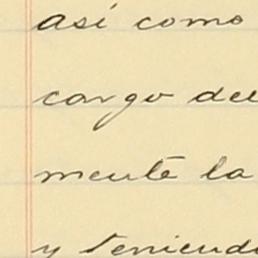 así como
cargo del
mente la
y teniendo